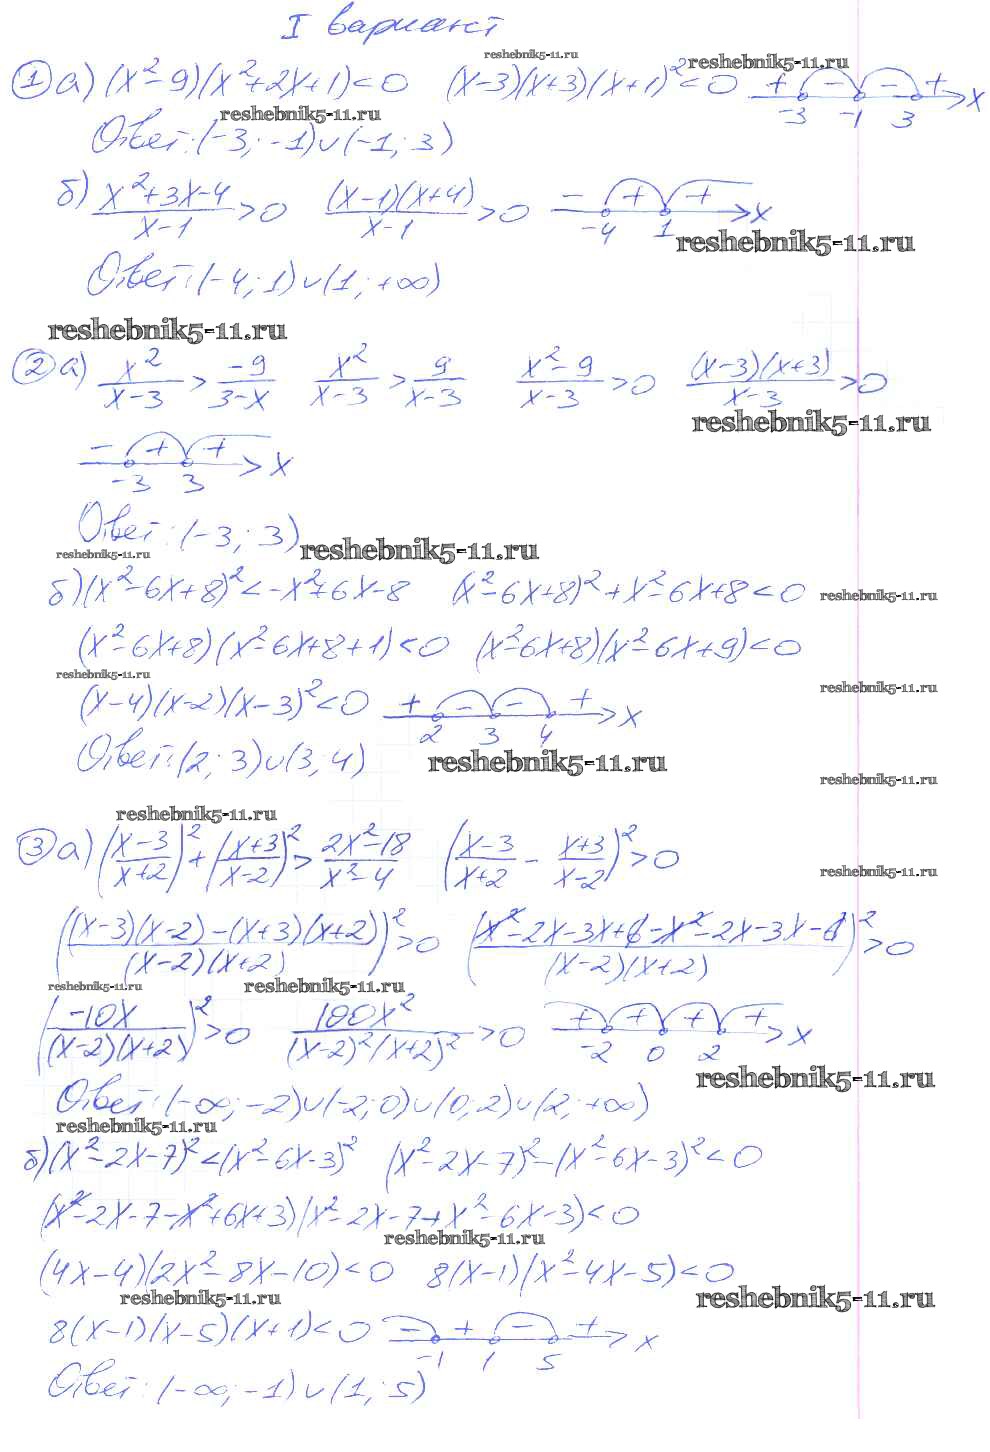 I вариант
reshebnik5-11.ru
① а) (x²-9)(x²+2x+1)<0 (x-3)(x+3)(x+1)²<0 + - - + -3 -1 3 x
reshebnik5-11.ru
reshebnik5-11.ru
Ответ: (-3; -1)∪(-1; 3)
б) (x²+3x-4)/(x-1)>0 ((x-1)(x+4))/(x-1)>0 - + + -4 1 x
reshebnik5-11.ru
Ответ: (-4; 1)∪(1; +∞)
reshebnik5-11.ru
② а) x²/(x-3) > -9/(3-x) x²/(x-3) > 9/(x-3) (x²-9)/(x-3)>0 ((x-3)(x+3))/(x-3)>0
reshebnik5-11.ru
- + + -3 3 x
Ответ: (-3; 3)
reshebnik5-11.ru
reshebnik5-11.ru
б) (x²-6x+8)²<-x²+6x-8 (x²-6x+8)²+x²-6x+8<0
reshebnik5-11.ru
(x²-6x+8)(x²-6x+8+1)<0 (x²-6x+8)(x²-6x+9)<0
reshebnik5-11.ru
reshebnik5-11.ru
(x-4)(x-2)(x-3)²<0 + - - + 2 3 4 x
Ответ: (2; 3)∪(3; 4)
reshebnik5-11.ru
reshebnik5-11.ru
reshebnik5-11.ru
③ а) ((x-3)/(x+2))²+((x+3)/(x-2))²>(2x²-18)/(x²-4) ((x-3)/(x+2) - (x+3)/(x-2))²>0
reshebnik5-11.ru
(((x-3)(x-2)-(x+3)(x+2))/((x-2)(x+2)))²>0 ((x²-2x-3x+6-x²-2x-3x-6)/((x-2)(x+2)))²>0
reshebnik5-11.ru
reshebnik5-11.ru
(-10x/((x-2)(x+2)))²>0 100x²/((x-2)²(x+2)²)>0 + + + + -2 0 2 x
reshebnik5-11.ru
Ответ: (-∞; -2)∪(-2; 0)∪(0; 2)∪(2; +∞)
reshebnik5-11.ru
б) (x²-2x-7)²<(x²-6x-3)² (x²-2x-7)²-(x²-6x-3)²<0
(x²-2x-7-x²+6x+3)(x²-2x-7+x²-6x-3)<0
reshebnik5-11.ru
(4x-4)(2x²-8x-10)<0 8(x-1)(x²-4x-5)<0
reshebnik5-11.ru
reshebnik5-11.ru
8(x-1)(x-5)(x+1)<0 - + - + -1 1 5 x
Ответ: (-∞; -1)∪(1; 5)